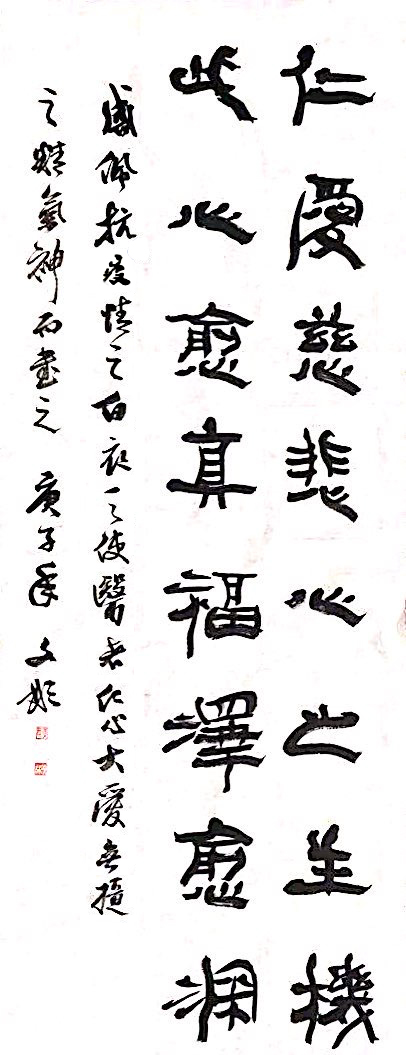 仁愛慈悲心之生機
此心愈真福澤愈深
感佩抗疫情之白衣天使醫者仁心大愛無疆
之精氣神而書之 庚子年 文